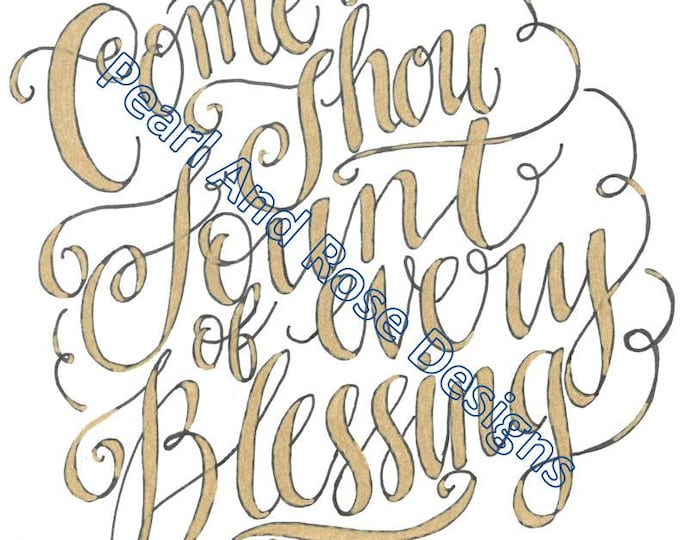 Come
Thou
Fount
of every
Blessing
Pearl And Rose Designs